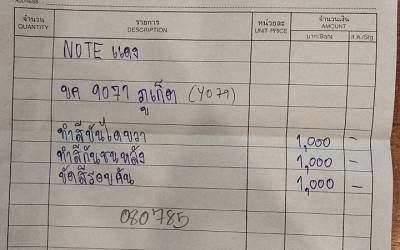 ADDRESS
จำนวน รายการ หน่วยละ จำนวนเงิน
QUANTITY DESCRIPTION UNIT PRICE AMOUNT
บาท Baht ส.ต./Stg.
NOTE แดง
ขค 9071 ภูเก็ต (4079)
ทำสีบันไดขวา 1,000 –
ทำสีกันชนหลัง 1,000 –
ขัดสีรอบคัน 1,000 –
080785